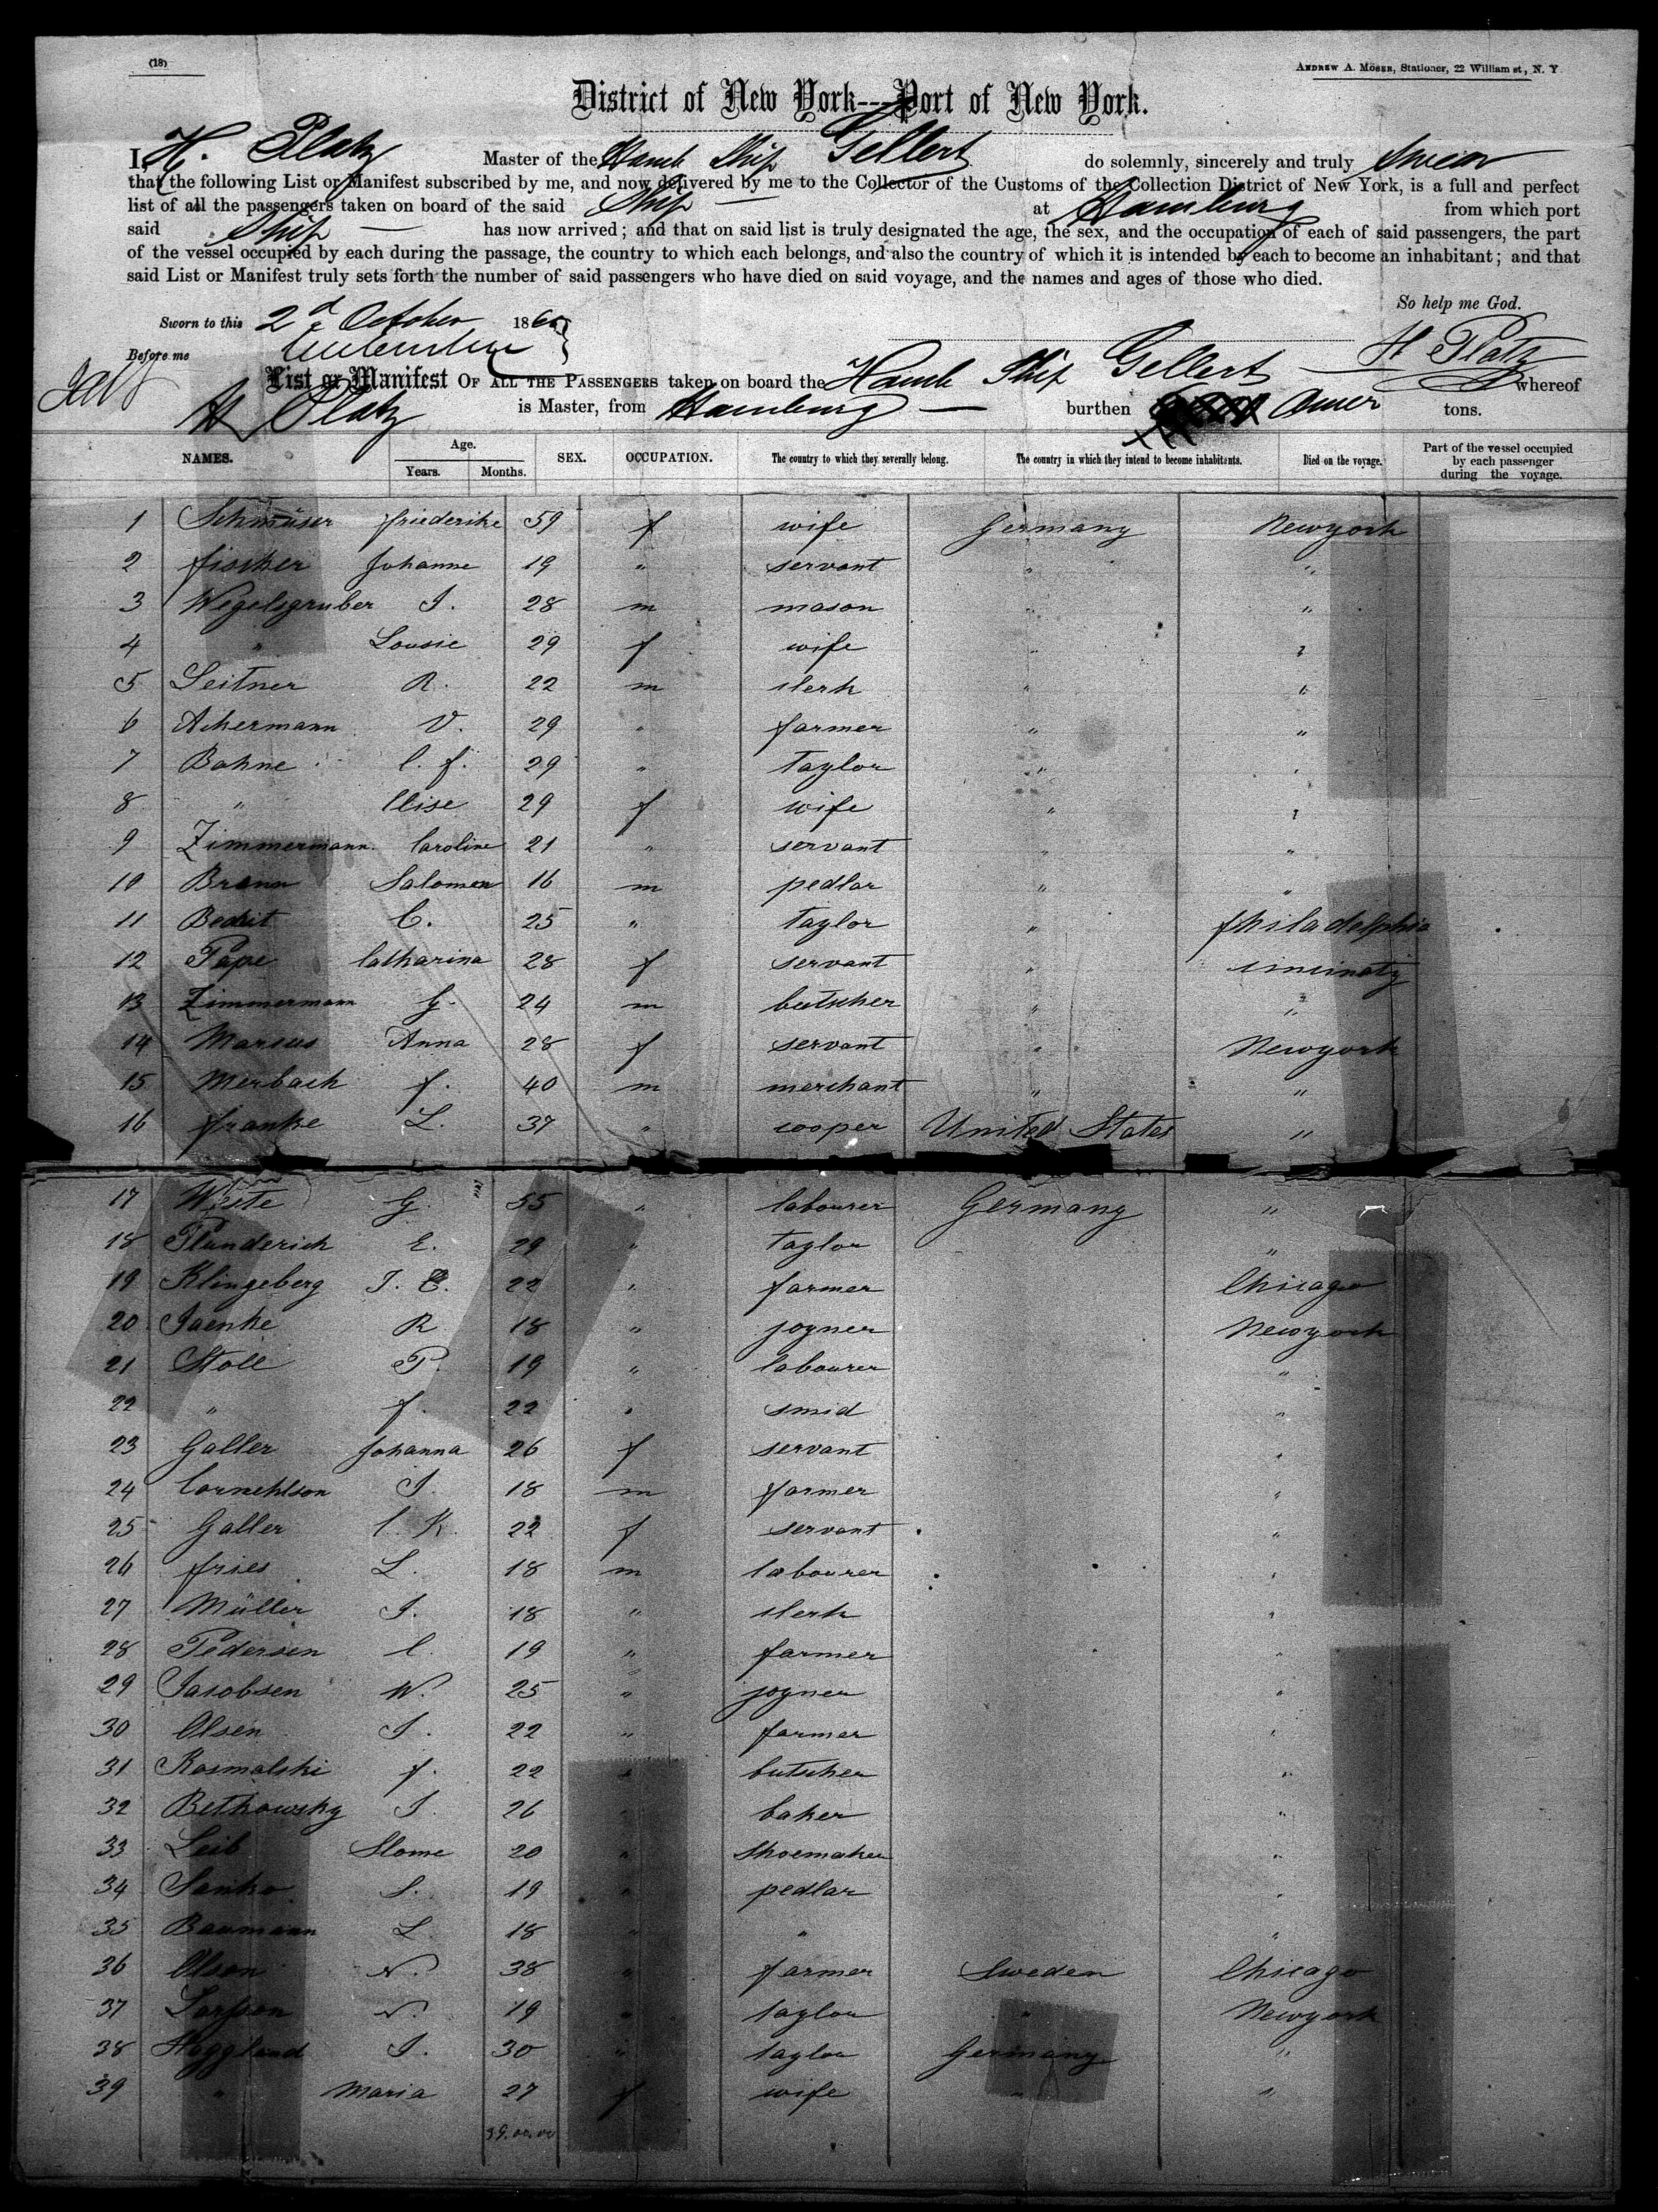 (18)
ANDREW A. MOSER, Stationer, 22 William st, N. Y
District of New York---Port of New York.
I, H. Platz Master of the Hamb Ship Gellert do solemnly, sincerely and truly swear
that the following List or Manifest subscribed by me, and now delivered by me to the Collector of the Customs of the Collection District of New York, is a full and perfect
list of all the passengers taken on board of the said Ship — at Hamburg from which port
said Ship — has now arrived; and that on said list is truly designated the age, the sex, and the occupation of each of said passengers, the part
of the vessel occupied by each during the passage, the country to which each belongs, and also the country of which it is intended by each to become an inhabitant; and that
said List or Manifest truly sets forth the number of said passengers who have died on said voyage, and the names and ages of those who died.
So help me God.
Sworn to this 2d October 186
Before me
H Platz
List or Manifest OF ALL THE PASSENGERS taken on board the Hamb Ship Gellert whereof
H Platz is Master, from Hamburg — burthen tons.
NAMES. Age. Years. Months. SEX. OCCUPATION. The country to which they severally belong. The country in which they intend to become inhabitants. Died on the voyage. Part of the vessel occupied by each passenger during the voyage.
1 Schmüser friederike 59 f wife Germany Newyork
2 fischer Johanne 19 " servant " "
3 Wegelsgruber J. 28 m mason " "
4 " Lousie 29 f wife " "
5 Leitner R. 22 m clerk " "
6 Ackermann V. 29 " farmer " "
7 Bohne C. f. 29 " taylor " "
8 " Elise 29 f wife " "
9 Zimmermann Caroline 21 " servant " "
10 Brann Salomon 16 m pedlar " "
11 Bedrit C. 25 " taylor " philadelphia
12 Pape Catharina 28 f servant " cincinaty
13 Zimmermann G. 24 m butscher " "
14 Marcus Anna 28 f servant " Newyork
15 Merbach f. 40 m merchant " "
16 franke L. 37 " cooper United States "
17 Weste G. 55 " labourer Germany "
18 Plunderich E. 29 " taylor "
19 Klingeberg J. C. 22 " farmer Chicago
20 Jaenke R 18 " joyner Newyork
21 Stoll P. 19 " labourer "
22 " f. 22 " smid "
23 Galler Johanna 26 f servant "
24 Cornehlson J. 18 m farmer "
25 Galler C. K. 22 f servant "
26 fries L. 18 m labourer "
27 Müller J. 18 " clerk "
28 Pedersen C. 19 " farmer "
29 Jacobsen W. 25 " joyner "
30 Olsen J. 22 " farmer "
31 Kosmalski f. 22 " butscher "
32 Bethowsky J. 26 " baker "
33 Leib Slome 20 " shoemaker "
34 Sanko S. 19 " pedlar "
35 Baumann L. 18 " " "
36 Olson N. 38 " farmer Sweden Chicago
37 Larsson N. 19 " taylor " Newyork
38 Hoggland J. 30 " taylor Germany "
39 " Maria 27 f wife " "